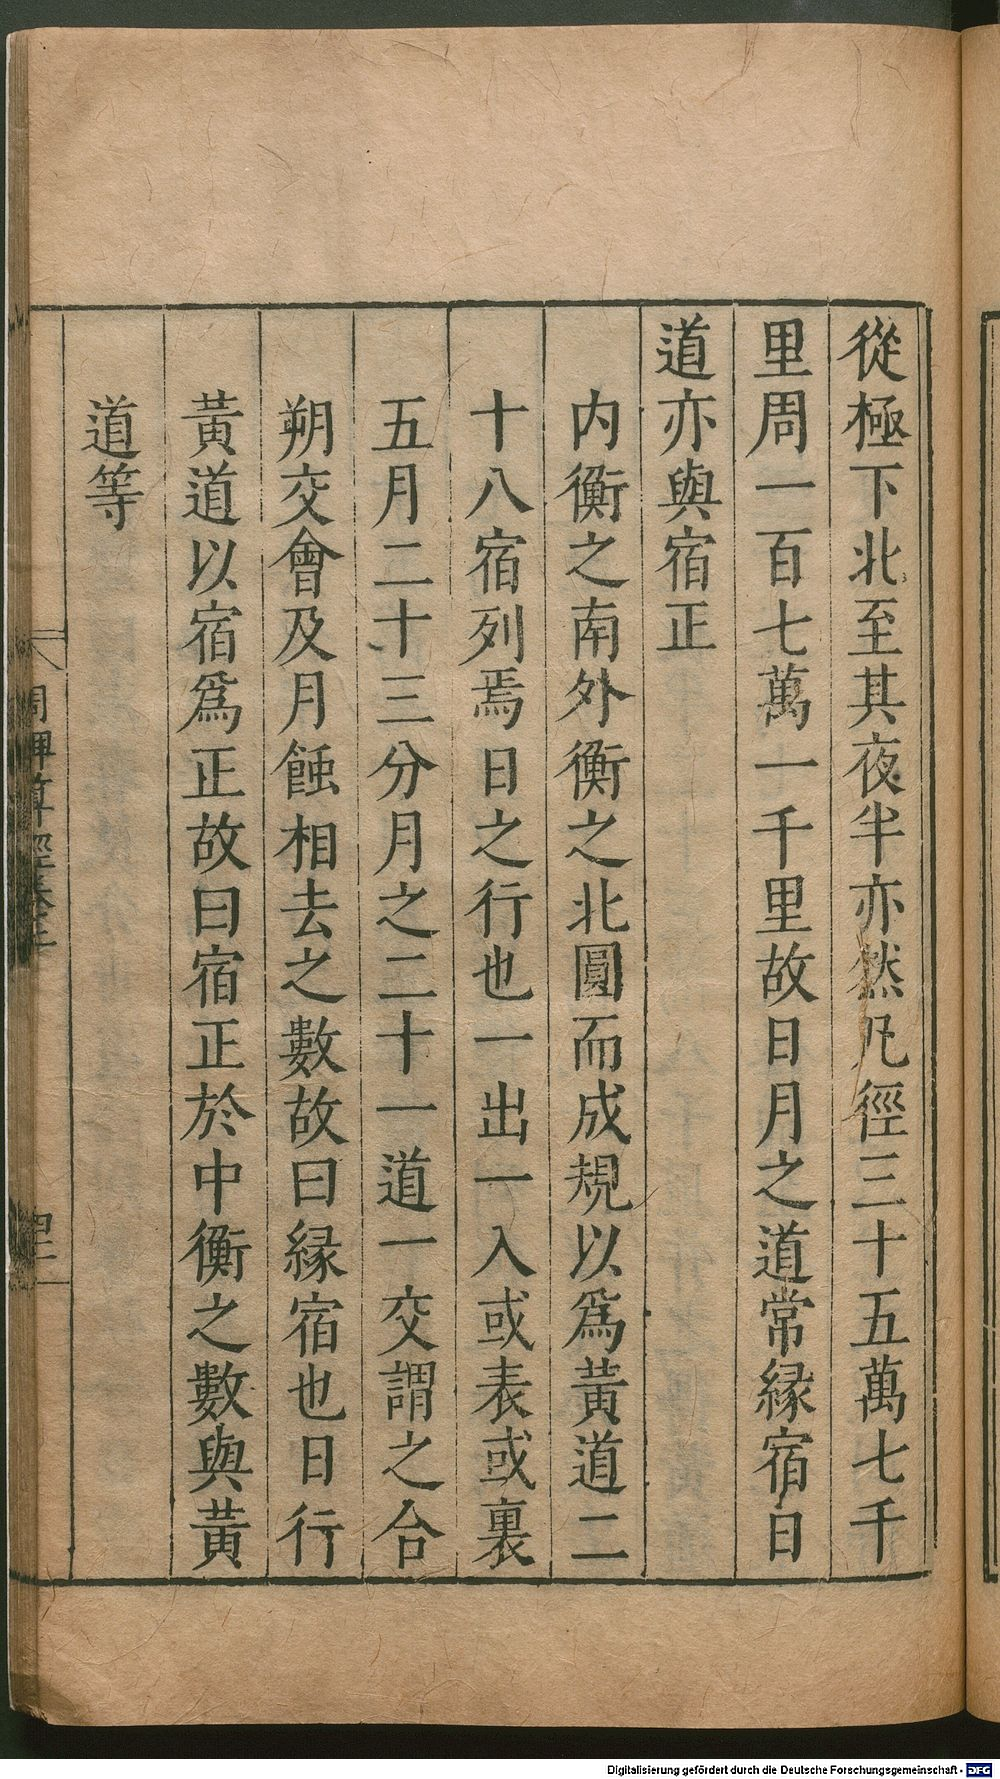 從極下北至其夜半亦然凡徑三十五萬七千
里周一百七萬一千里故日月之道常緣宿日
道亦與宿正
内衡之南外衡之北圓而成規以爲黃道二
十八宿列焉日之行也一出一入或表或裏
五月二十三分月之二十一道一交謂之合
朔交會及月蝕相去之數故曰緣宿也日行
黃道以宿爲正故曰宿正於中衡之數與黃
道等
周髀算經卷上
Digitalisierung gefördert durch die Deutsche Forschungsgemeinschaft - DFG